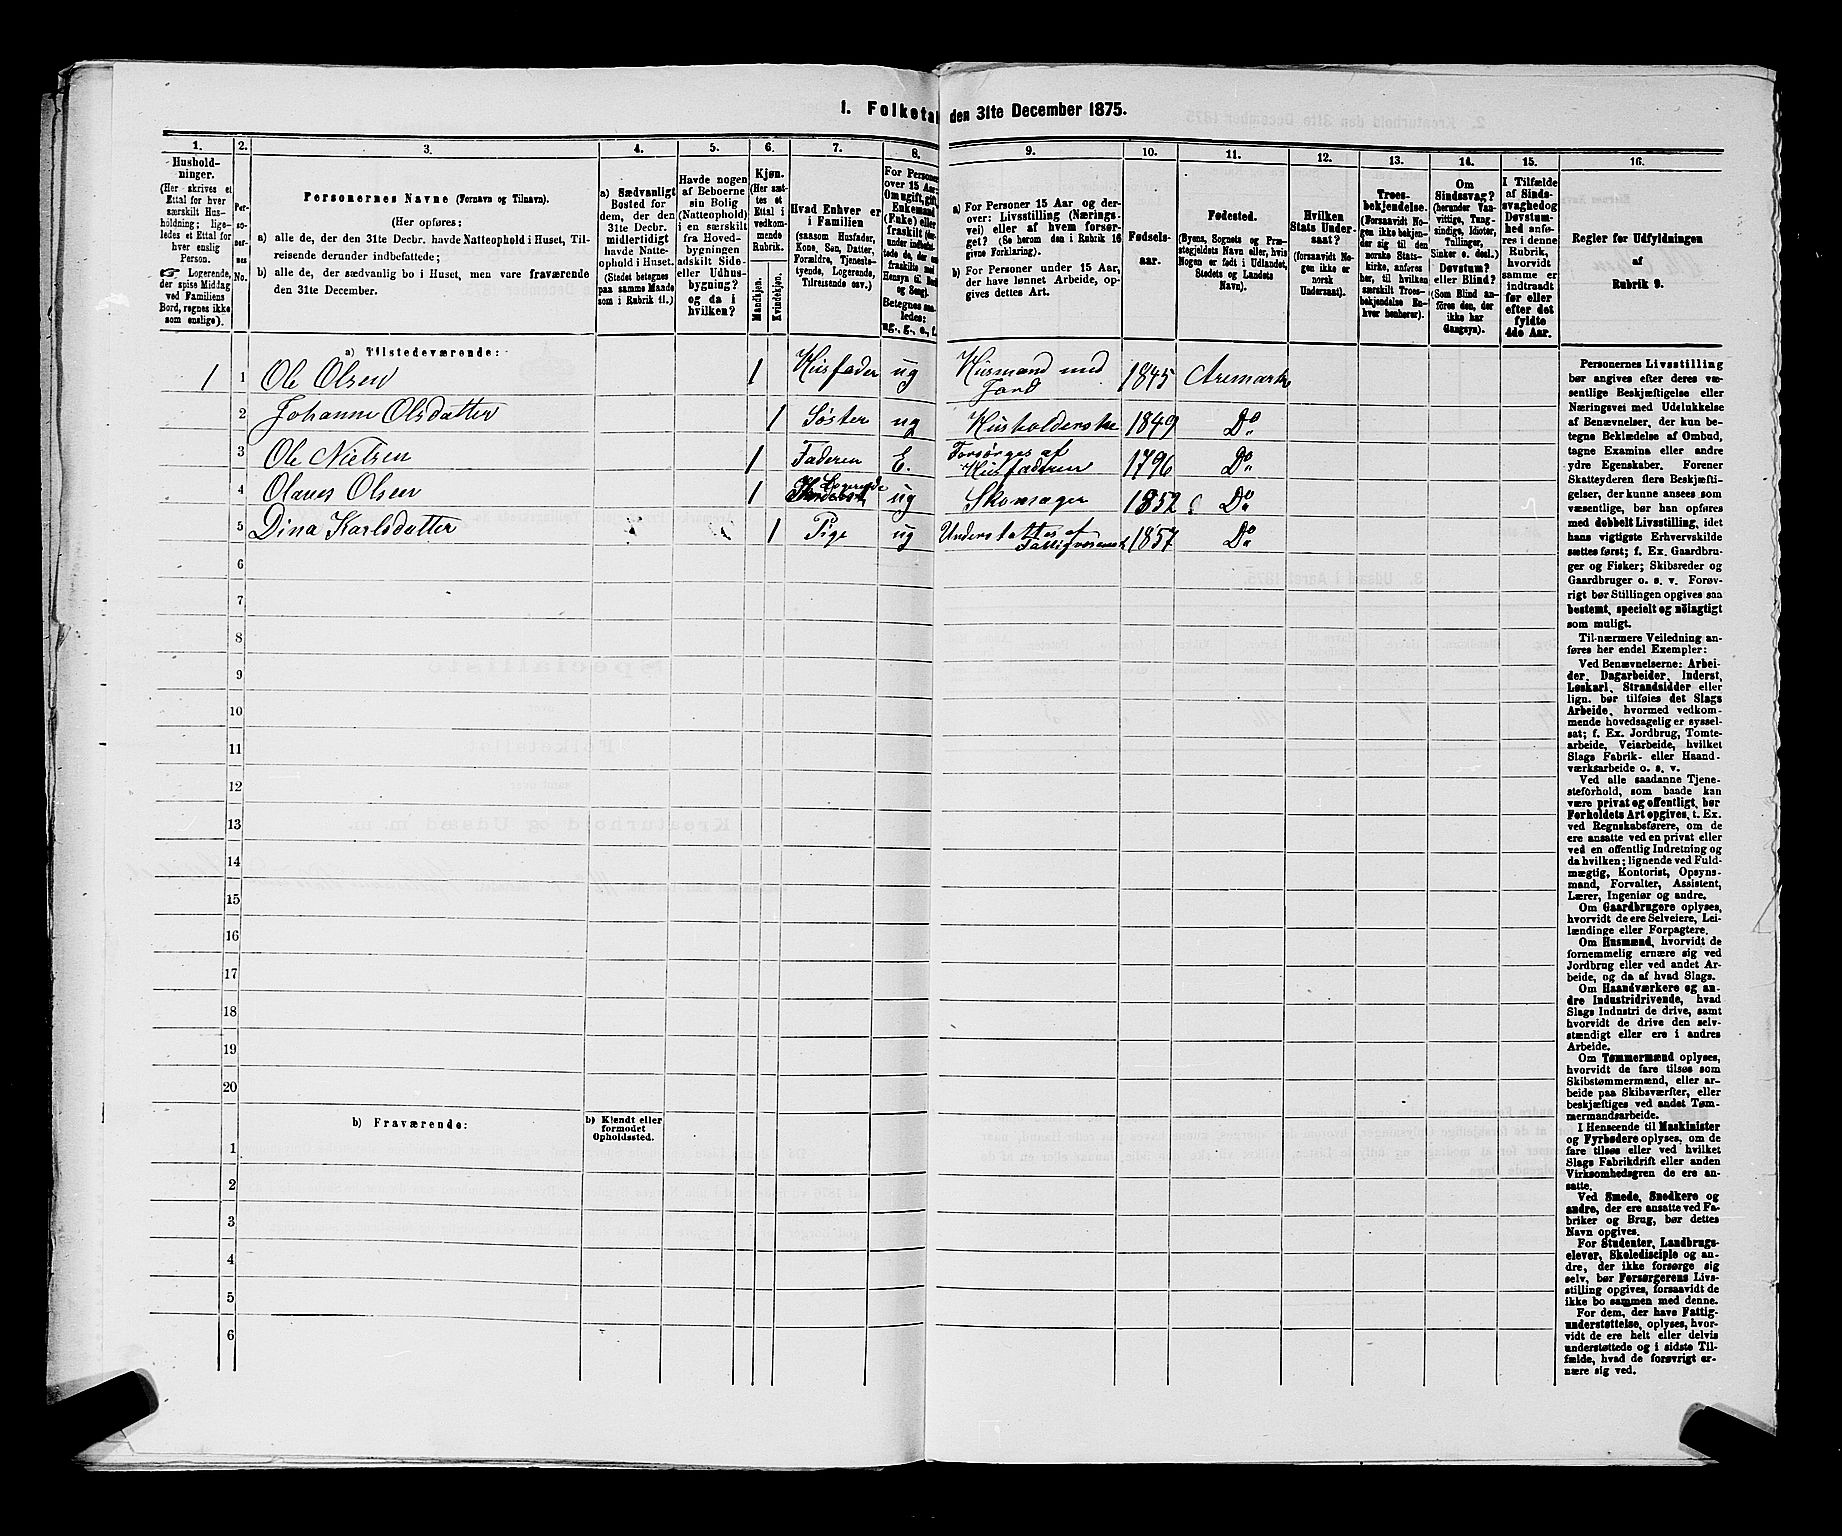 1. Folketal den 31te December 1875.
1.
2.
3.
4.
5.
6.
7.
8.
9.
10.
11.
12.
13.
14.
15.
16.
Hushold-
ninger.
(Her skrives et
Ettal for hver
særskilt Hus-
holdning; lige-
ledes et Ettal for
hver enslig
Person.
☞ Logerende,
der spise Middag
ved Familiens
Bord, regnes ikke
som enslige).
Per-
so-
ner-
nes
No.
Personernes Navne (Fornavn og Tilnavn).
(Her opføres:
a) alle de, der den 31te Decbr. havde Natteophold i Huset, Til-
reisende derunder indbefattede;
b) alle de, der sædvanlig bo i Huset, men vare fraværende
den 31te December.
a) Sædvanligt
Bosted for
dem, der den
31te Decbr.
midlertidigt
havde Natte-
ophold i Huset.
(Stedet betegnes
paa samme Maade
som i Rubrik 11.)
Havde nogen
af Beboerne
sin Bolig
(Natteophold)
i en særskilt
fra Hoved-
bygningen
adskilt Side-
eller Udhus-
bygning?
og da i
hvilken?
Kjøn.
(Her sæt-
tes et
Ettal i
vedkom-
mende
Rubrik.
Mandkjøn.
Kvindekjøn.
Hvad Enhver er
i Familien
(saasom Husfader,
Kone, Søn, Datter,
Forældre, Tjeneste-
tyende, Logerende,
Tilreisende osv.)
For Personer
over 15 Aar:
Om ugift, gift,
Enkemand
(Enke) eller
fraskilt
Betegnes saa-
ledes:
ug., g., e., f.
a) For Personer 15 Aar og der-
over: Livsstilling (Nærings-
vei) eller af hvem forsør-
get? (Se herom den i Rubrik 16
givne Forklaring).
b) For Personer under 15 Aar,
der have lønnet Arbeide, op-
gives dettes Art.
Fødsels-
aar.
Fødested.
(Byens, Sognets og Præ-
stegjeldets Navn eller, hvis
Nogen er født i Udlandet,
Stedets og Landets
Navn).
Hvilken
Stats Under-
saat?
(forsaavidt No-
gen ikke er
norsk
Undersaat).
Troes-
bekjendelse.
(Forsaavidt No-
gen ikke bekjen-
der sig til den
norske Stats-
kirke, anføres
her, til hvilken
særskilt Troes-
bekjendelse En-
hver henhører).
Om
Sindssvag?
(herunder Van-
vittige, Tung-
sindige, Idioter,
Tullinger,
Sinker o. desl.)
Døvstum?
eller Blind?
(Som Blind an-
føres den, der
ikke har
Gangsyn).
I Tilfælde
af Sinds-
svaghed og
Døvstum-
hed anfø-
res i denne
Rubrik,
hvorvidt
samme er
indtraadt
før eller
efter det
fyldte
4de Aar.
Regler for Udfyldningen
af
Rubrik 9.
a) Tilstedeværende:
1 1 Ole Olsen 1 Husfader ug Husmand med Jord 1845 Aremark
2 Johanne Olsdatter 1 Søster ug Husholderske 1849 Do
3 Ole Nielsen 1 Faderen E. Forsørges af Husfaderen 1796 Do
4 Olaves Olsen 1 Logerende ug Skomager 1852 Do
5 Dina Karlsdatter 1 Pige ug Understøttes af Fattigvæsenet 1857 Do
6
7
8
9
10
11
12
13
14
15
16
17
18
19
20
b) Fraværende:
b) Kjendt eller
formodet
Opholdssted.
1
2
3
4
5
6
Personernes Livsstilling
bør angives efter deres væ-
sentlige Beskjæftigelse eller
Næringsvei med Udelukkelse
af Benævnelser, der kun be-
tegne Beklædelse af Ombud,
tagne Examina eller andre
ydre Egenskaber. Forener
Skatteyderen flere Beskjæfti-
gelser, der kunne ansees som
væsentlige, bør han opføres
med dobbelt Livsstilling, idet
hans vigtigste Erhvervskilde
sættes først; f. Ex. Gaardbru-
ger og Fisker; Skibsreder og
Gaardbruger o. s. v. Forøv-
rigt bør Stillingen opgives saa
bestemt, specielt og nøiagtigt
som muligt.
Til nærmere Veiledning an-
føres her endel Exempler:
Ved Benævnelserne: Arbei-
der, Dagarbeider, Inderst,
Løskarl, Strandsidder eller
lign. bør tilføies det Slags
Arbeide, hvormed vedkom-
mende hovedsagelig er syssel-
sat; f. Ex. Jordbrug, Tomte-
arbeide, Veiarbeide, hvilket
Slags Fabrik- eller Haand-
værksarbeide o. s. v.
Ved alle saadanne Tjene-
steforhold, som baade kan
være privat og offentligt, bør
Forholdets Art opgives, t. Ex.
ved Regnskabsførere, om de
ere ansatte ved en privat eller
ved en offentlig Indretning og
da hvilken; lignende ved Fuld-
mægtig, Kontorist, Opsyns-
mand, Forvalter, Assistent,
Lærer, Ingeniør og andre.
Om Gaardbrugere oplyses,
hvorvidt de ere Selveiere, Lei-
lændinge eller Forpagtere.
Om Husmænd, hvorvidt de
fornemmelig ernære sig ved
Jordbrug eller ved andet Ar-
beide, og da af hvad Slags.
Om Haandværkere og an-
dre Industridrivende, hvad
Slags Industri de drive, samt
hvorvidt de drive den selv-
stændigt eller ere i andres
Arbeide.
Om Tømmermænd oplyses,
hvorvidt de fare tilsøs som
Skibstømmermænd, eller ar-
beide paa Skibsværfter, eller
beskjæftiges ved andet Tøm-
mermandsarbeide.
I Henseende til Maskinister
og Fyrbødere oplyses, om de
fare tilsøs eller ved hvilket
Slags Fabrikdrift eller anden
Virksomhedsgren de ere an-
satte.
Ved Smede, Snedkere og
andre, der ere ansatte ved Fa-
briker og Brug, bør dettes
Navn opgives.
For Studenter, Landbrugs-
elever, Skoledisciple og an-
dre, der ikke forsørge sig
selv, bør Forsørgerens Livs-
stilling opgives, forsaavidt de
ikke bo sammen med denne.
For dem, der have Fattig-
understøttelse, oplyses, hvor-
vidt de ere helt eller delvis
understøttede og i sidste Til-
fælde, hvad de forøvrigt er-
nære sig ved.